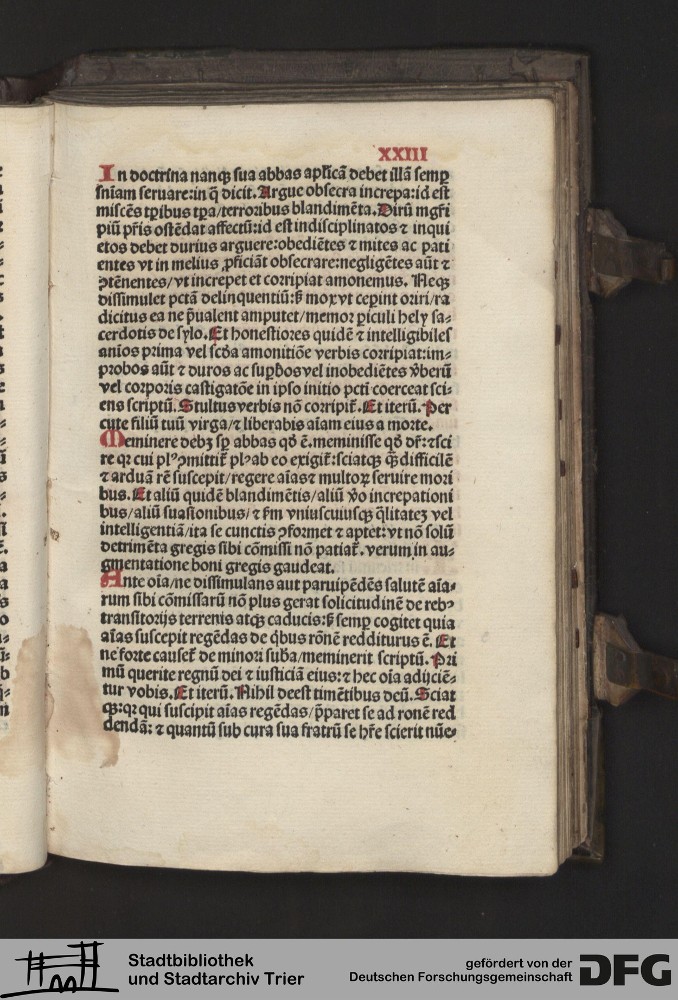 XXIII
In doctrina nanqʒ sua abbas apl̓icā debet illā semꝑ
sn̄iam seruare:in q̄ dicit. Argue obsecra increpa:id est
miscēs tp̄ibus tp̄a/terroribus blandimēta. Dirū mgr̄i
piū pr̄is ostēdat affectū:id est indisciplinatos ⁊ inqui
etos debet durius arguere:obediētes ⁊ mites ac pati
entes vt in melius ꝓficiāt obsecrare:negligētes aūt ⁊
ꝯtēnentes/vt increpet et corripiat amonemus. Neqʒ
dissimulet pctā delinquentiū:sʒ mox vt ceꝑint oriri/ra
dicitus ea ne p̄ualent amputet/memor ꝑiculi hely sa-
cerdotis de sylo. Et honestiores quidē ⁊ intelligibiles
anīos prima vel scd̄a amonitiōe verbis corripiat:im-
probos aūt ⁊ duros ac suꝑbos vel inobediētes v̄berū
vel corporis castigatōe in ipso initio pctī coerceat sci-
ens scriptū. Stultus verbis nō corripit̄. Et iterū. Per
cute filiū tuū virga/⁊ liberabis aīam eius a morte.
Meminere debʒ sp̄ abbas qd̄ ē. meminisse qd̄ dr̄:⁊ sci
re qꝛ cui plꝰ ꝯmittit̄ plꝰ ab eo exigit̄:sciatqʒ q̄ʒ difficilē
⁊ arduā rē suscepit/regere aīas ⁊ multoꝝ seruire mori
bus. Et aliū quidē blandimētis/aliū v̄o increpationi
bus/aliū suasionibus/⁊ sm̄ vniuscuiusqʒ q̄litatēʒ vel
intelligentiā/ita se cunctis ꝯformet ⁊ aptet:vt nō solū
detrimēta gregis sibi cōmissi nō patiat̄. verum in au-
gmentatione boni gregis gaudeat.
Ante oīa/ne dissimulans aut paruipēdēs salutē aīa-
rum sibi cōmissarū nō plus gerat solicitudinē de rebꝰ
transitorijs terrenis atqʒ caducis:sʒ semꝑ cogitet quia
aīas suscepit regēdas de q̄bus rōnē redditurus ē. Et
ne forte causet̄ de minori sub̄a/meminerit scriptū. Pri
mū querite regnū dei ⁊ iusticiā eius:⁊ hec oīa adijciē-
tur vobis. Et iterū. Nihil deest timētibus deū. Sciat
qʒ:qꝛ qui suscipit aīas regēdas/p̄paret se ad ronē red
dendā: ⁊ quantū sub cura sua fratrū se hr̄e scierit nūe-
Stadtbibliothek
und Stadtarchiv Trier
gefördert von der
Deutschen Forschungsgemeinschaft
DFG